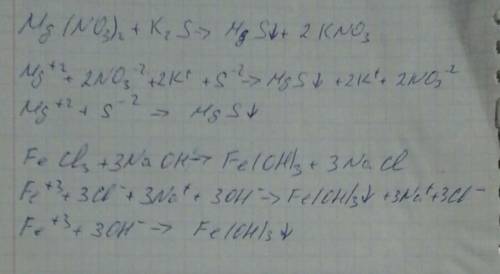 Mg(NO₃)₂ + K₂S → MgS↓ + 2KNO₃
Mg⁺² + 2NO₃⁻² + 2K⁺ + S⁻² → MgS↓ + 2K⁺ + 2NO₃⁻²
Mg⁺² + S⁻² → MgS↓
FeCl₃ + 3NaOH → Fe(OH)₃ + 3NaCl
Fe⁺³ + 3Cl⁻ + 3Na⁺ + 3OH⁻ → Fe(OH)₃↓ + 3Na⁺ + 3Cl⁻
Fe⁺³ + 3OH⁻ → Fe(OH)₃↓